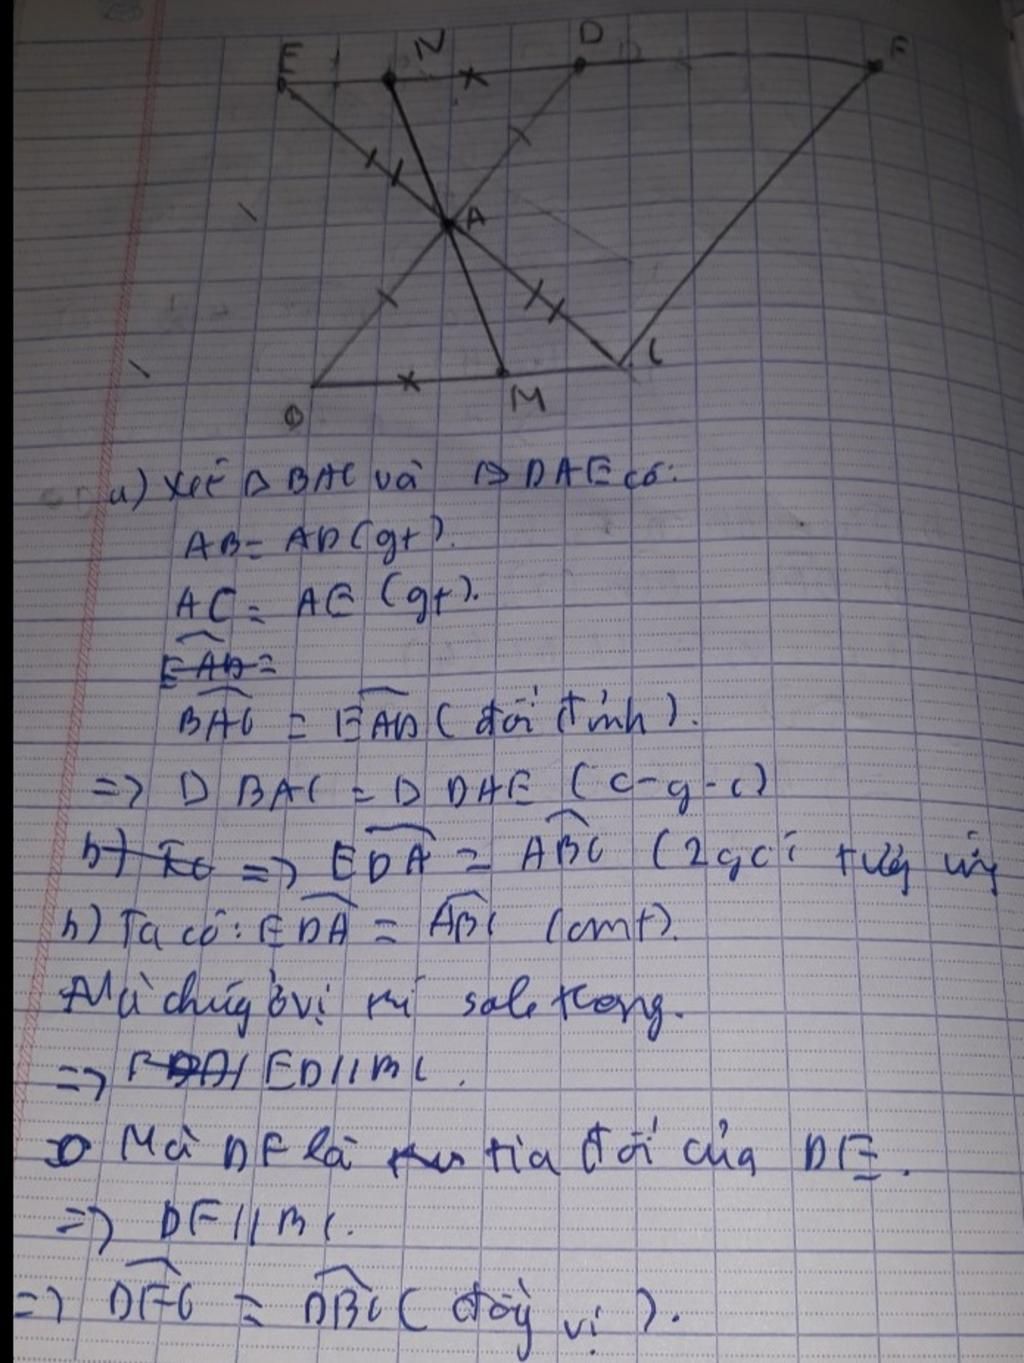 E N D F
A
B M C
a) Xét Δ BAC và Δ DAE có:
AB = AD (gt).
AC = AE (gt).
EAD =
BAC = EAD (đối đỉnh).
=> Δ BAC = Δ DAE (c-g-c)
b) => EDA = ABC (2 góc tương ứng
b) Ta có: EDA = ABC (cmt).
Mà chúng ở vị trí sole trong.
=> ED // BC.
Mà DF là tia đối của DE.
=> DF // BC.
=> DFC = DBC (đồng vị).